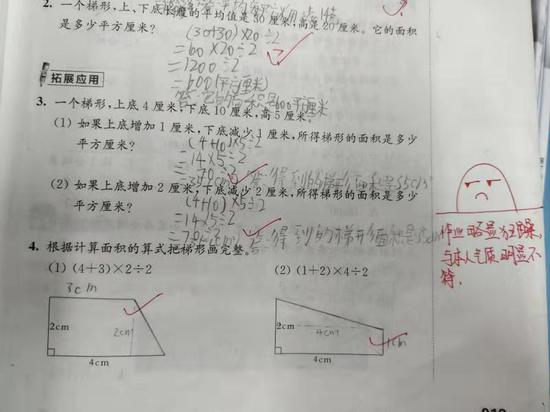 2. 一个梯形,上、下底长度的平均值是 30 厘米,高是 20 厘米。它的面积
是多少平方厘米?
(30+30)×20÷2
=60×20÷2
=1200÷2
=600(平方厘米)
拓展应用
3. 一个梯形,上底 4 厘米,下底 10 厘米,高 5 厘米。
(1) 如果上底增加 1 厘米,下底减少 1 厘米,所得梯形的面积是多少
平方厘米?
(4+10)×5÷2
=14×5÷2
=70÷2
(2) 如果上底增加 2 厘米,下底减少 2 厘米,所得梯形的面积是多少
平方厘米?
(4+10)×5÷2
=14×5÷2
=70÷2
4. 根据计算面积的算式把梯形画完整。
(1) (4+3)×2÷2
(2) (1+2)×4÷2
3cm
2cm
2cm
4cm
2cm
4cm
1cm
4cm
作业略显狂躁,
与本人气质明显不
符.